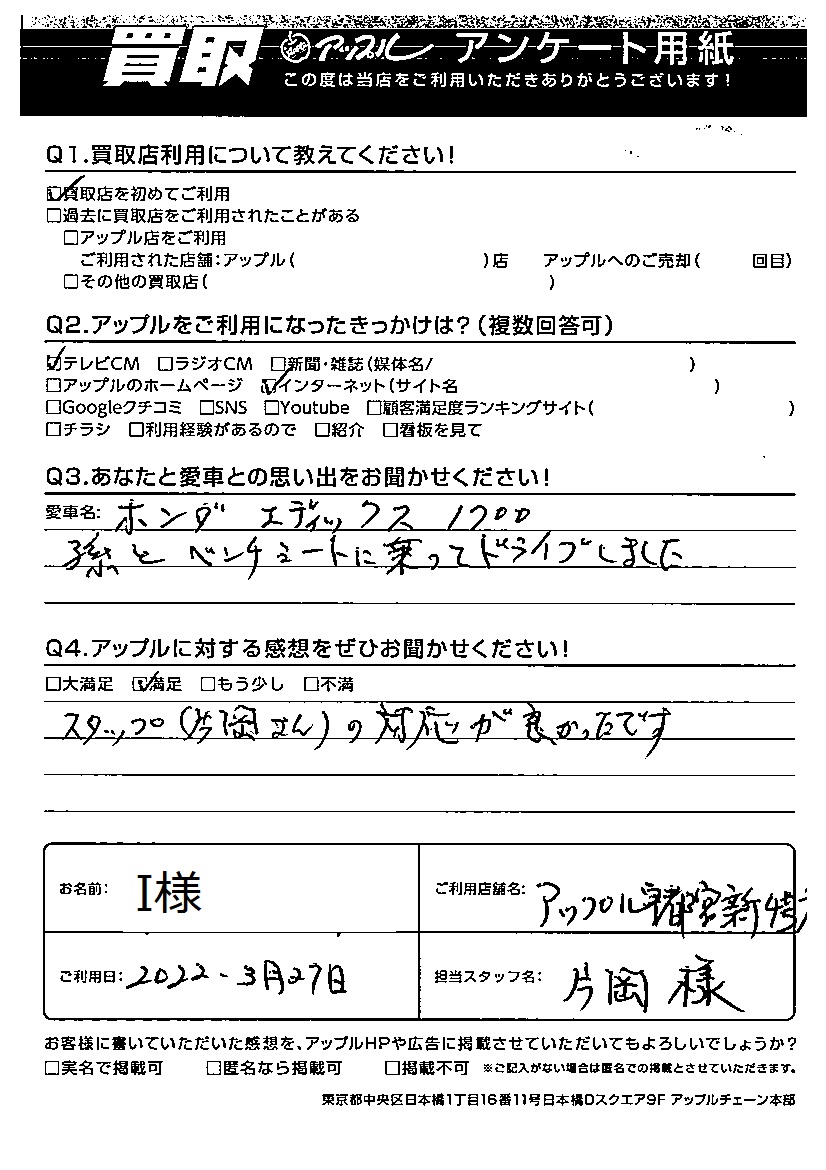 買取 アップル アンケート用紙
この度は当店をご利用いただきありがとうございます！
Q1.買取店利用について教えてください！
☑買取店を初めてご利用
□過去に買取店をご利用されたことがある
□アップル店をご利用
ご利用された店舗：アップル（　　　）店　アップルへのご売却（　　回目）
□その他の買取店（　　　）
Q2.アップルをご利用になったきっかけは？（複数回答可）
☑テレビCM　□ラジオCM　□新聞・雑誌（媒体名/　　　）
□アップルのホームページ　☑インターネット（サイト名　　　）
□Googleクチコミ　□SNS　□Youtube　□顧客満足度ランキングサイト（　　　）
□チラシ　□利用経験があるので　□紹介　□看板を見て
Q3.あなたと愛車との思い出をお聞かせください！
愛車名： ホンダ エディックス 1700
孫と ベンチシートに乗ってドライブしました
Q4.アップルに対する感想をぜひお聞かせください！
□大満足　☑満足　□もう少し　□不満
スタッフ（片岡さん）の対応が良かったです
お名前： I様
ご利用店舗名： アップル宇都宮新
ご利用日： 2022-3月27日
担当スタッフ名： 片岡 様
お客様に書いていただいた感想を、アップルHPや広告に掲載させていただいてもよろしいでしょうか？
□実名で掲載可　□匿名なら掲載可　□掲載不可　※ご記入がない場合は匿名での掲載とさせていただきます。
東京都中央区日本橋1丁目16番11号日本橋Dスクエア9F アップルチェーン本部